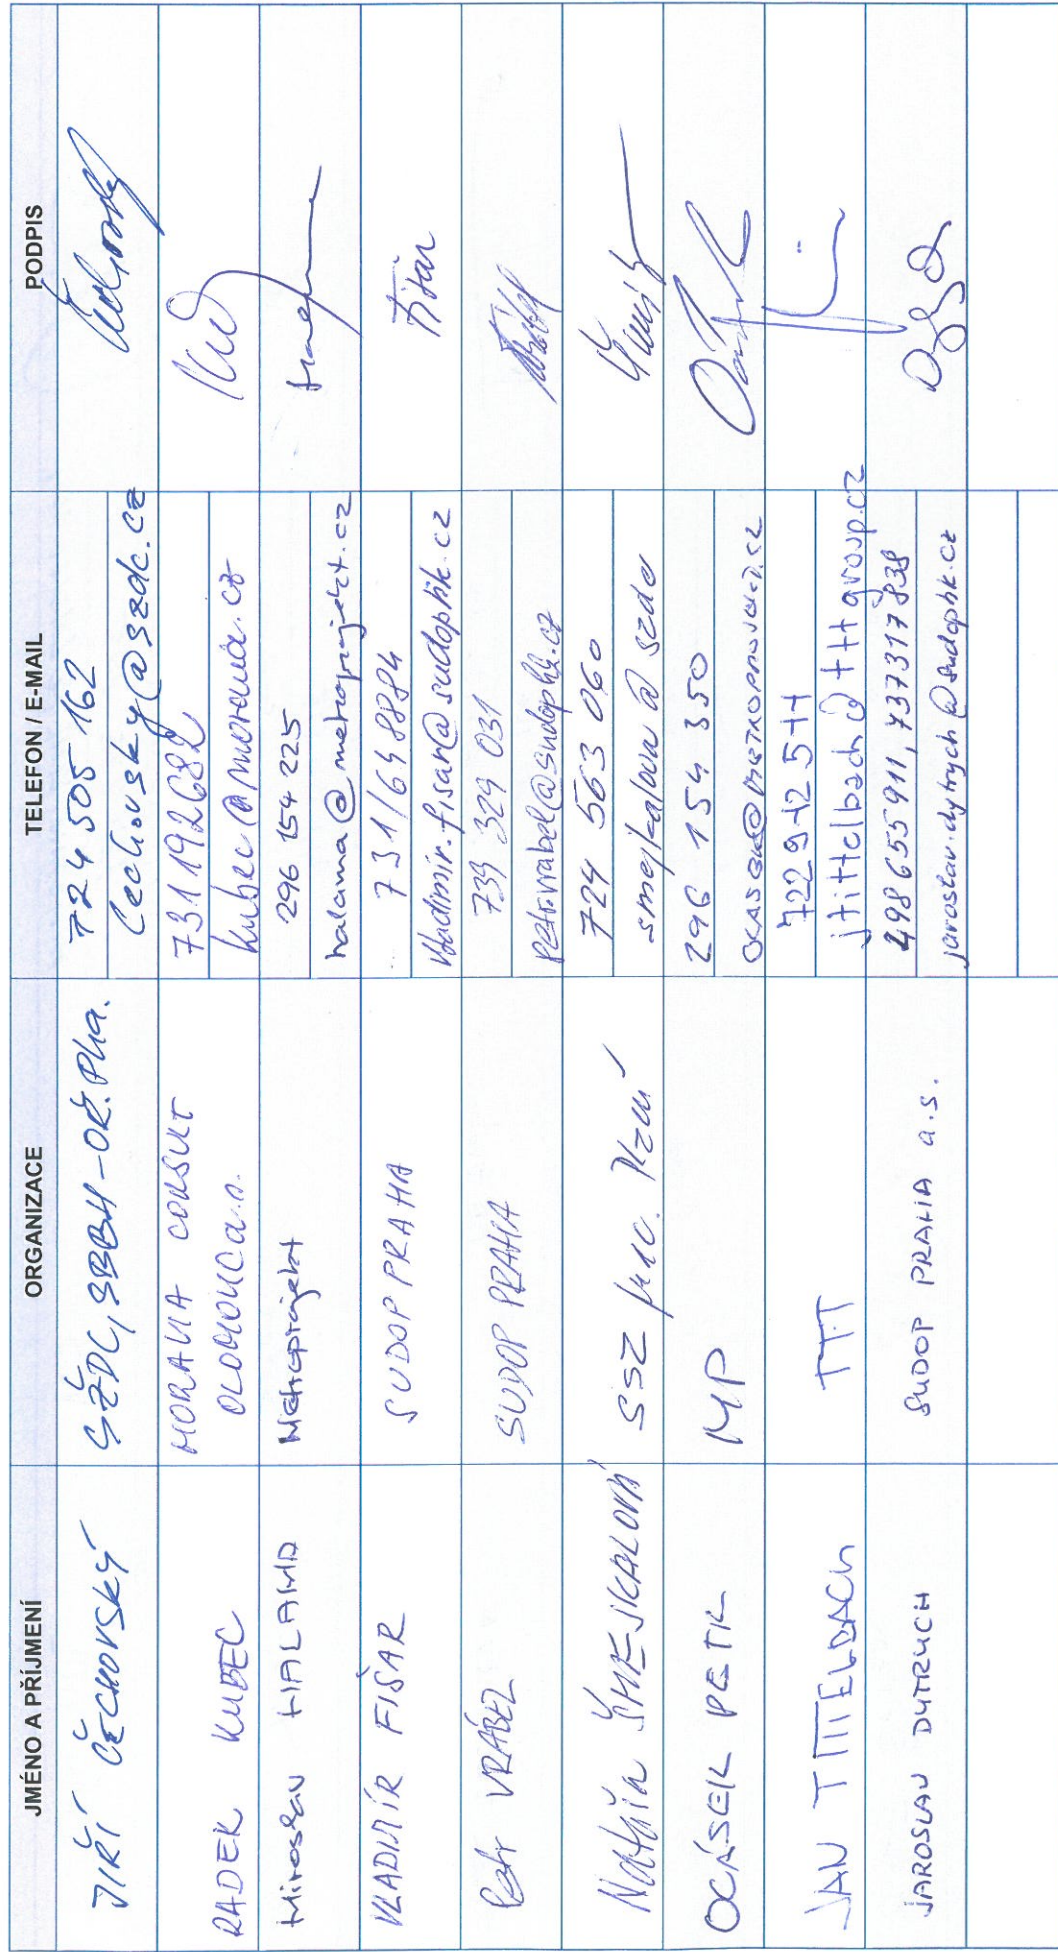 JMÉNO A PŘÍJMENÍ ORGANIZACE TELEFON / E-MAIL PODPIS
JIŘÍ ČECHOVSKÝ SŽDC, SBBH-OŘ.Pha. 724 505 162
cechovsky@szdc.cz
RADEK KUBEC MORAVIA CONSULT 731192682
OLOMOUC a.s. kubec@moravia.cz
Miroslav HALAMA Metroprojekt 296 154 225
halama@metroprojekt.cz
VLADIMÍR FIŠAR SUDOP PRAHA 731/648884
vladimir.fisar@sudophk.cz
Petr VRÁBEL SUDOP PRAHA 739 329 031
petr.vrabel@sudophk.cz
SSZ prac. Plzní 724 563 060
smejkalova@szdc
OCÁSEK PETR MP 296 154 350
JAN TITTELBACH TTT 722942544
jtittelbach@tttgroup.cz
JAROSLAV DYTRYCH SUDOP PRAHA a.s. 498655911, 737317838
jaroslav.dytrych@sudophk.cz